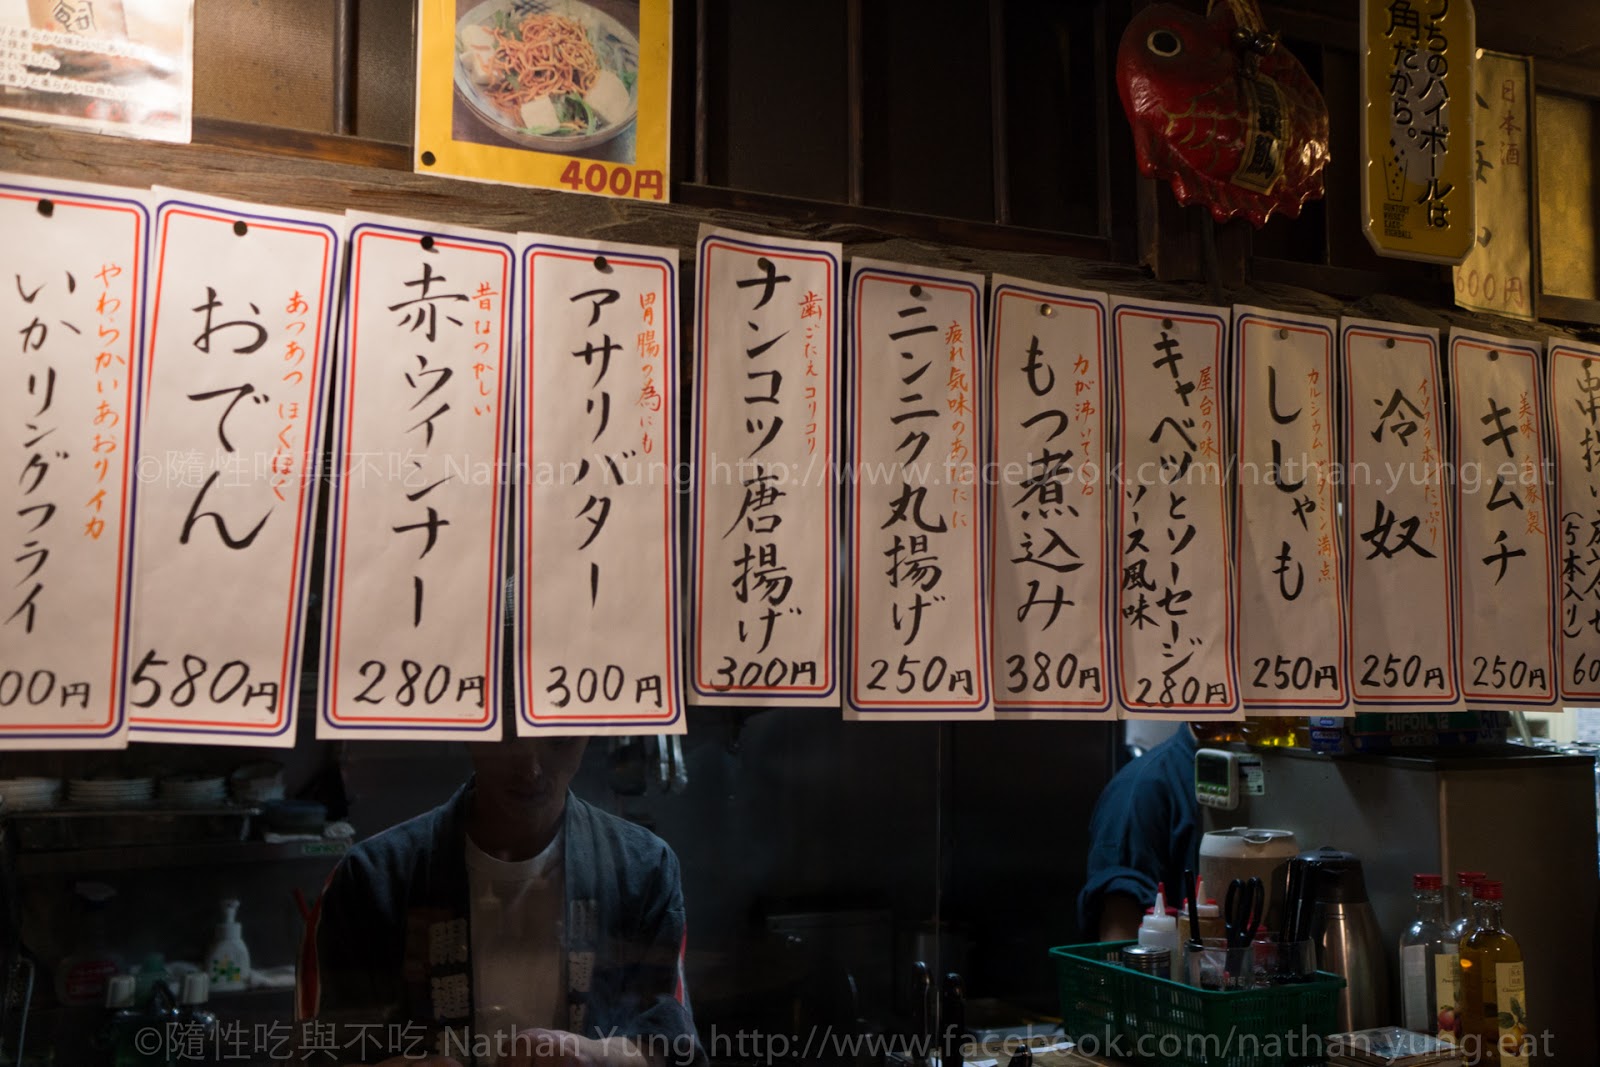 400円
うちのハイボールは
角だから。
日本酒
600円
やわらかいあおりイカ
いかリングフライ
00円
あつあつ ほくほく
おでん
580円
昔なつかしい
赤ウインナー
280円
胃腸の為にも
アサリバター
300円
歯ごたえコリコリ
ナンコツ唐揚げ
300円
疲れ気味のあなたに
ニンニク丸揚げ
250円
力が沸いてくる
もつ煮込み
380円
屋台の味
キャベツとソーセージ
ソース風味
280円
カルシウムビタミン満点
ししゃも
250円
イソフラボンたっぷり
冷奴
250円
美味 自家製
キムチ
250円
(5本入り)
60
HIFOIL 12
©隨性吃與不吃 Nathan Yung http://www.facebook.com/nathan.yung.eat
©隨性吃與不吃 Nathan Yung http://www.facebook.com/nathan.yung.eat